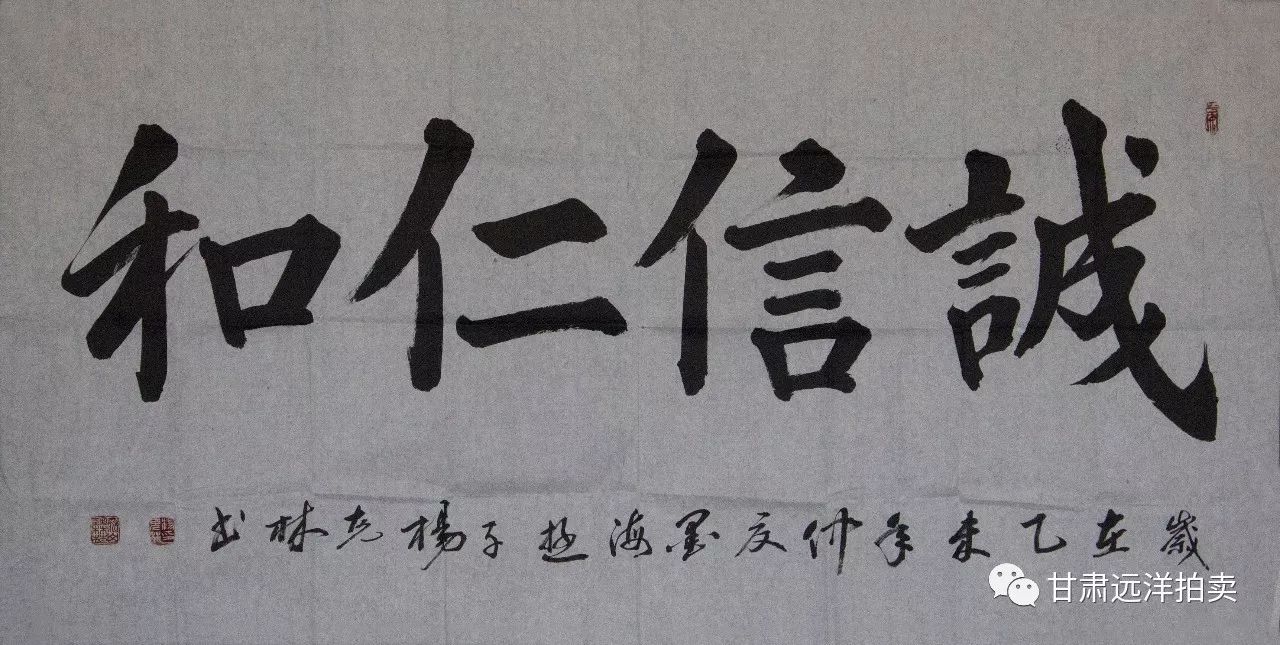 誠信仁和
歲在乙未年仲夏墨海遊子楊克林書
甘肃远洋拍卖